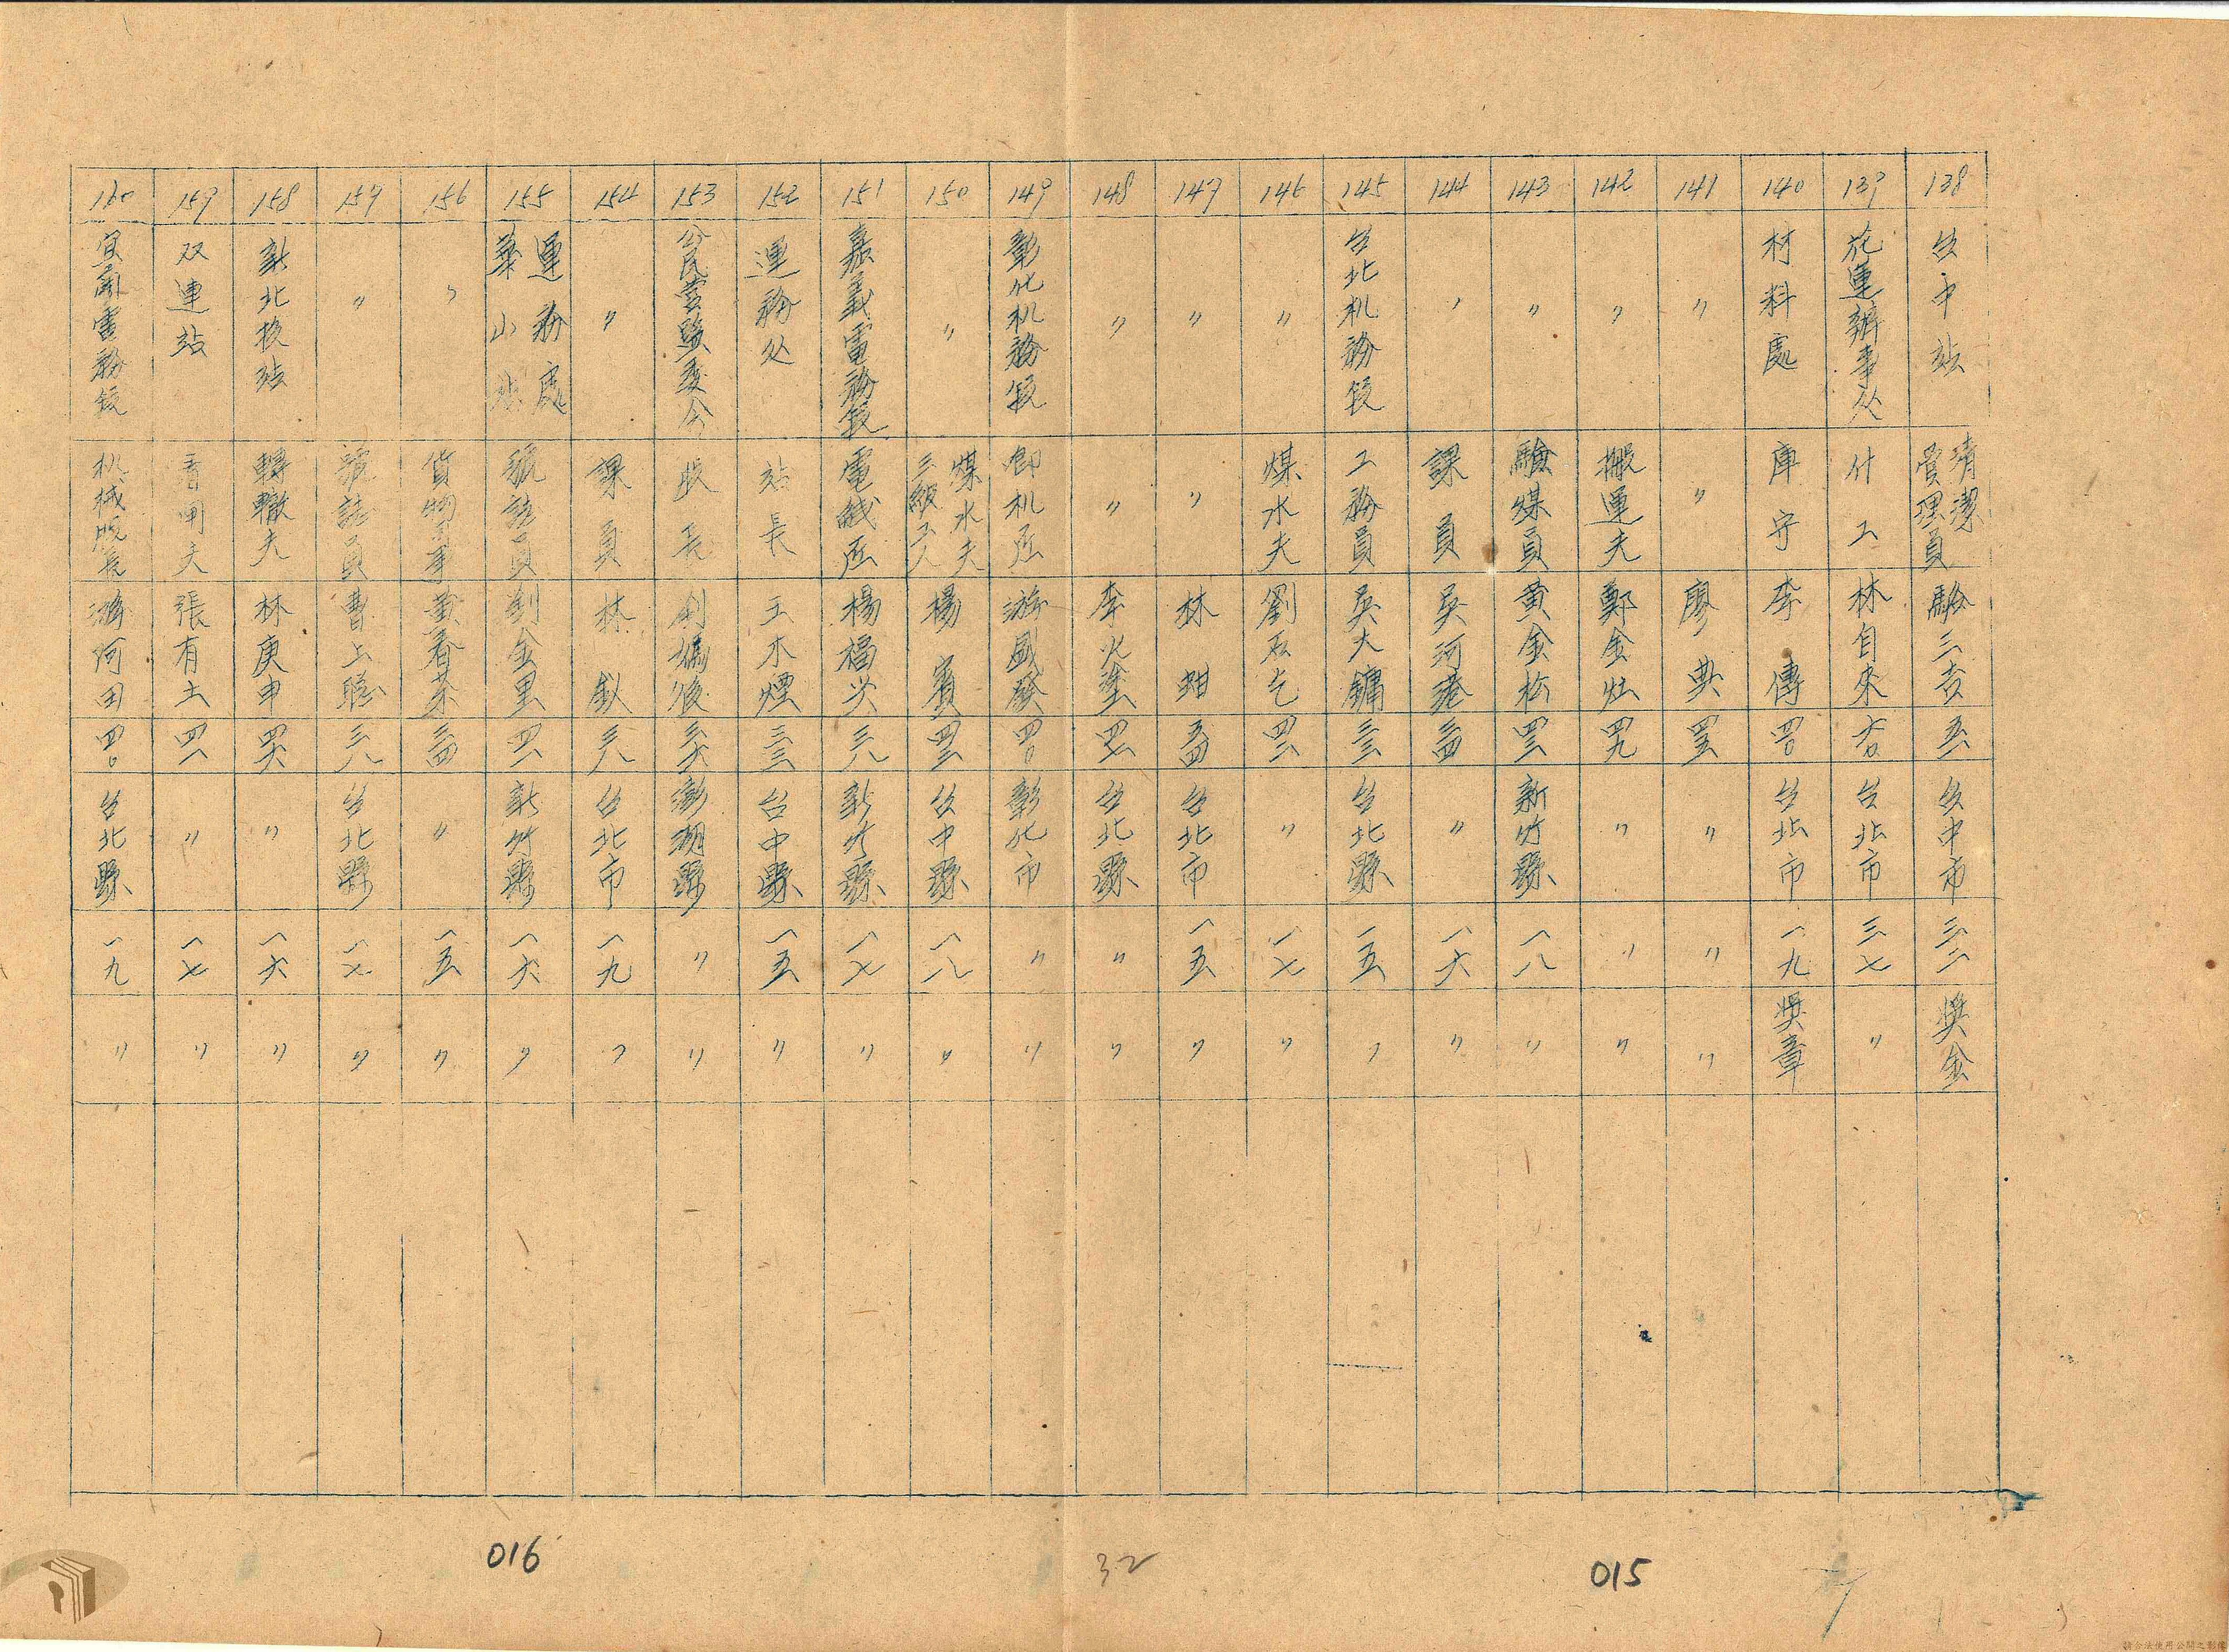 138 台中站 清潔管理員 三吉 五一 台中市 三二 獎金
139 花蓮辦事处 付工 林自來 六〇 台北市 三七 〃
140 材料處 庫守 李傳 四〇 台北市 一九 獎章
141 〃 〃 廖典 四五 〃 〃 〃
142 〃 搬運夫 鄭金灶 四九 〃 〃 〃
143 〃 驗煤員 黃金松 四三 新竹縣 一八 〃
144 〃 課員 吳河港 三四 〃 一六 〃
145 台北机務段 工務員 吳大鏞 三三 台北縣 一五 〃
146 〃 煤水夫 劉石乞 四二 〃 一七 〃
147 〃 〃 林甜 五四 台北市 一五 〃
148 〃 〃 李火塗 四七 台北縣 〃 〃
149 彰化机務段 机匠 游盛發 四〇 彰化市 〃 〃
150 〃 煤水夫三級工人 楊賓 四三 台中縣 一八 〃
151 嘉義電務段 電鍍匠 楊福 三八 新竹縣 一七 〃
152 運務处 站長 王木煙 三三 台中縣 一五 〃
153 公民營監委会 長 後 三六 澎湖縣 〃 〃
154 〃 課員 林 三八 台北市 一九 〃
155 運務處華山站 號誌員 劉金里 四一 新竹縣 一六 〃
156 〃 貨物司事 黃春茶 三四 〃 一五 〃
157 〃 號誌員 曹上聰 三八 台北縣 一七 〃
158 新北投站 轉轍夫 林庚申 四六 〃 一六 〃
159 双連站 看閘夫 張有土 四一 〃 一七 〃
160 宜蘭電務段 机械版長 游阿田 四〇 台北縣 一九 〃
016
32
015